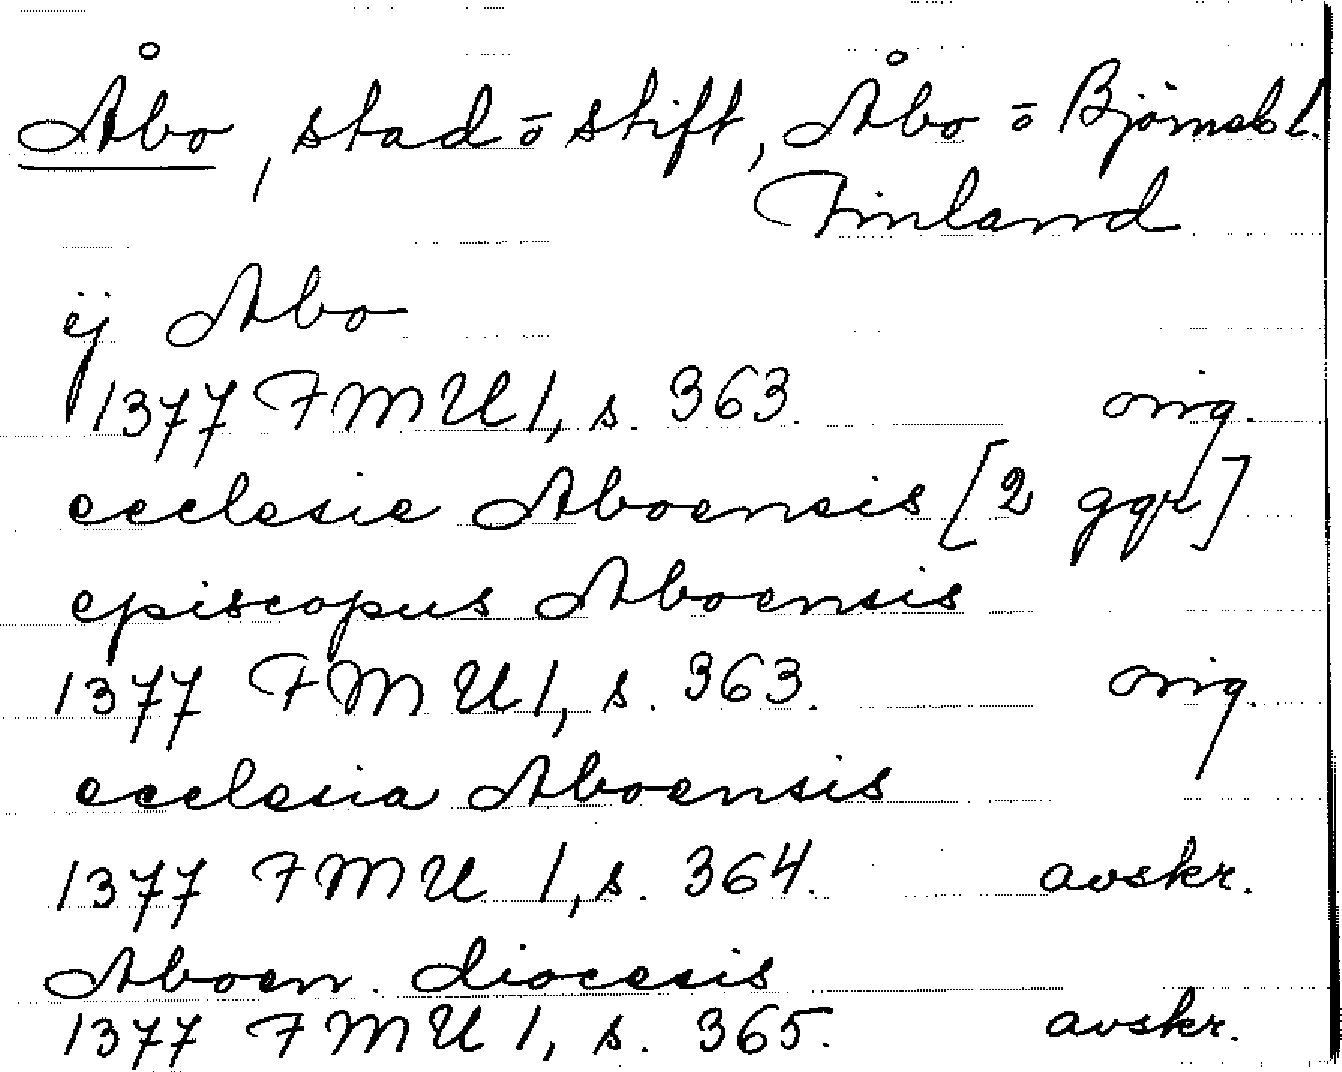 Åbo, stad ō stift, Åbo ō Björneb l.
Finland
ij Abo
1377 FMU 1, s. 363. orig.
ecclesie Aboensis [2 ggr]
episcopus Aboensis
1377 FMU 1, s. 363. orig.
ecclesia Aboensis
1377 FMU 1, s. 364. avskr.
Aboen. diocesis
1377 FMU 1, s. 365. avskr.